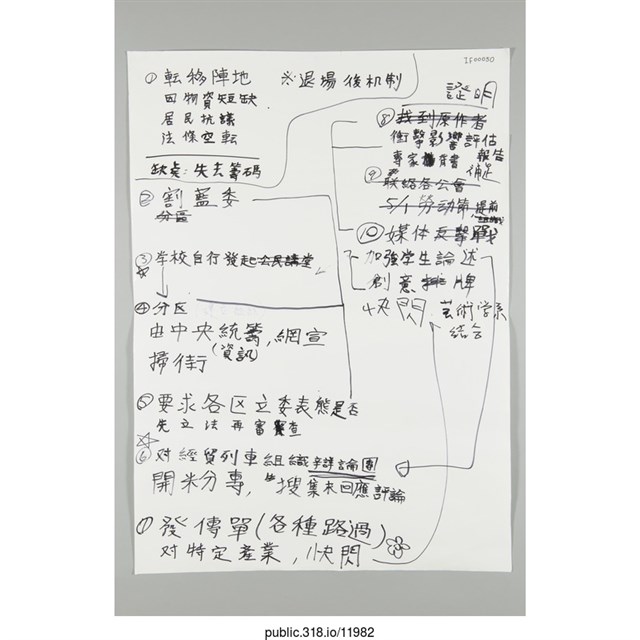 IF00050
①転移陣地
因物資短缺
居民抗議
法條空転
缺点:失去籌碼
※退場後机制
②割藍委
分區
③学校自行發起公民講堂
④分区
由中央統籌,網宣
掃街(資訊)
⑤要求各区立委表態是否
先立法再審審查
⑥对經貿列車組織辯論團
開米分專,搜集未回應評論
⑦發傳單(各種路過)
对特定產業,快閃
證明
⑧找到原作者
衝擊影響評估
報告
專家背書
補足
⑨聯絡各公會
5/1勞动節,提前
⑩媒体反擊戰
加強学生論述
創意排牌
快閃
芸術学系
結合
public.318.io/11982